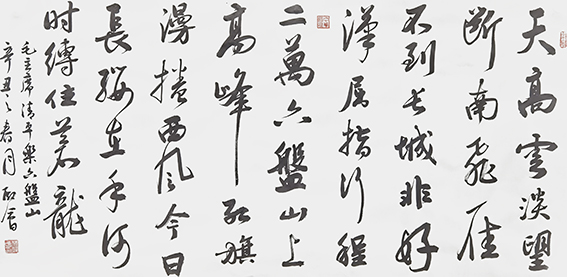 天高雲淡望
断南飛雁
不到长城非好
漢屈指行程
二萬六盤山上
高峰红旗
漫捲西风今日
長缨在手何
時縛住蒼龍
毛主席清平樂六盤山
辛丑之春月